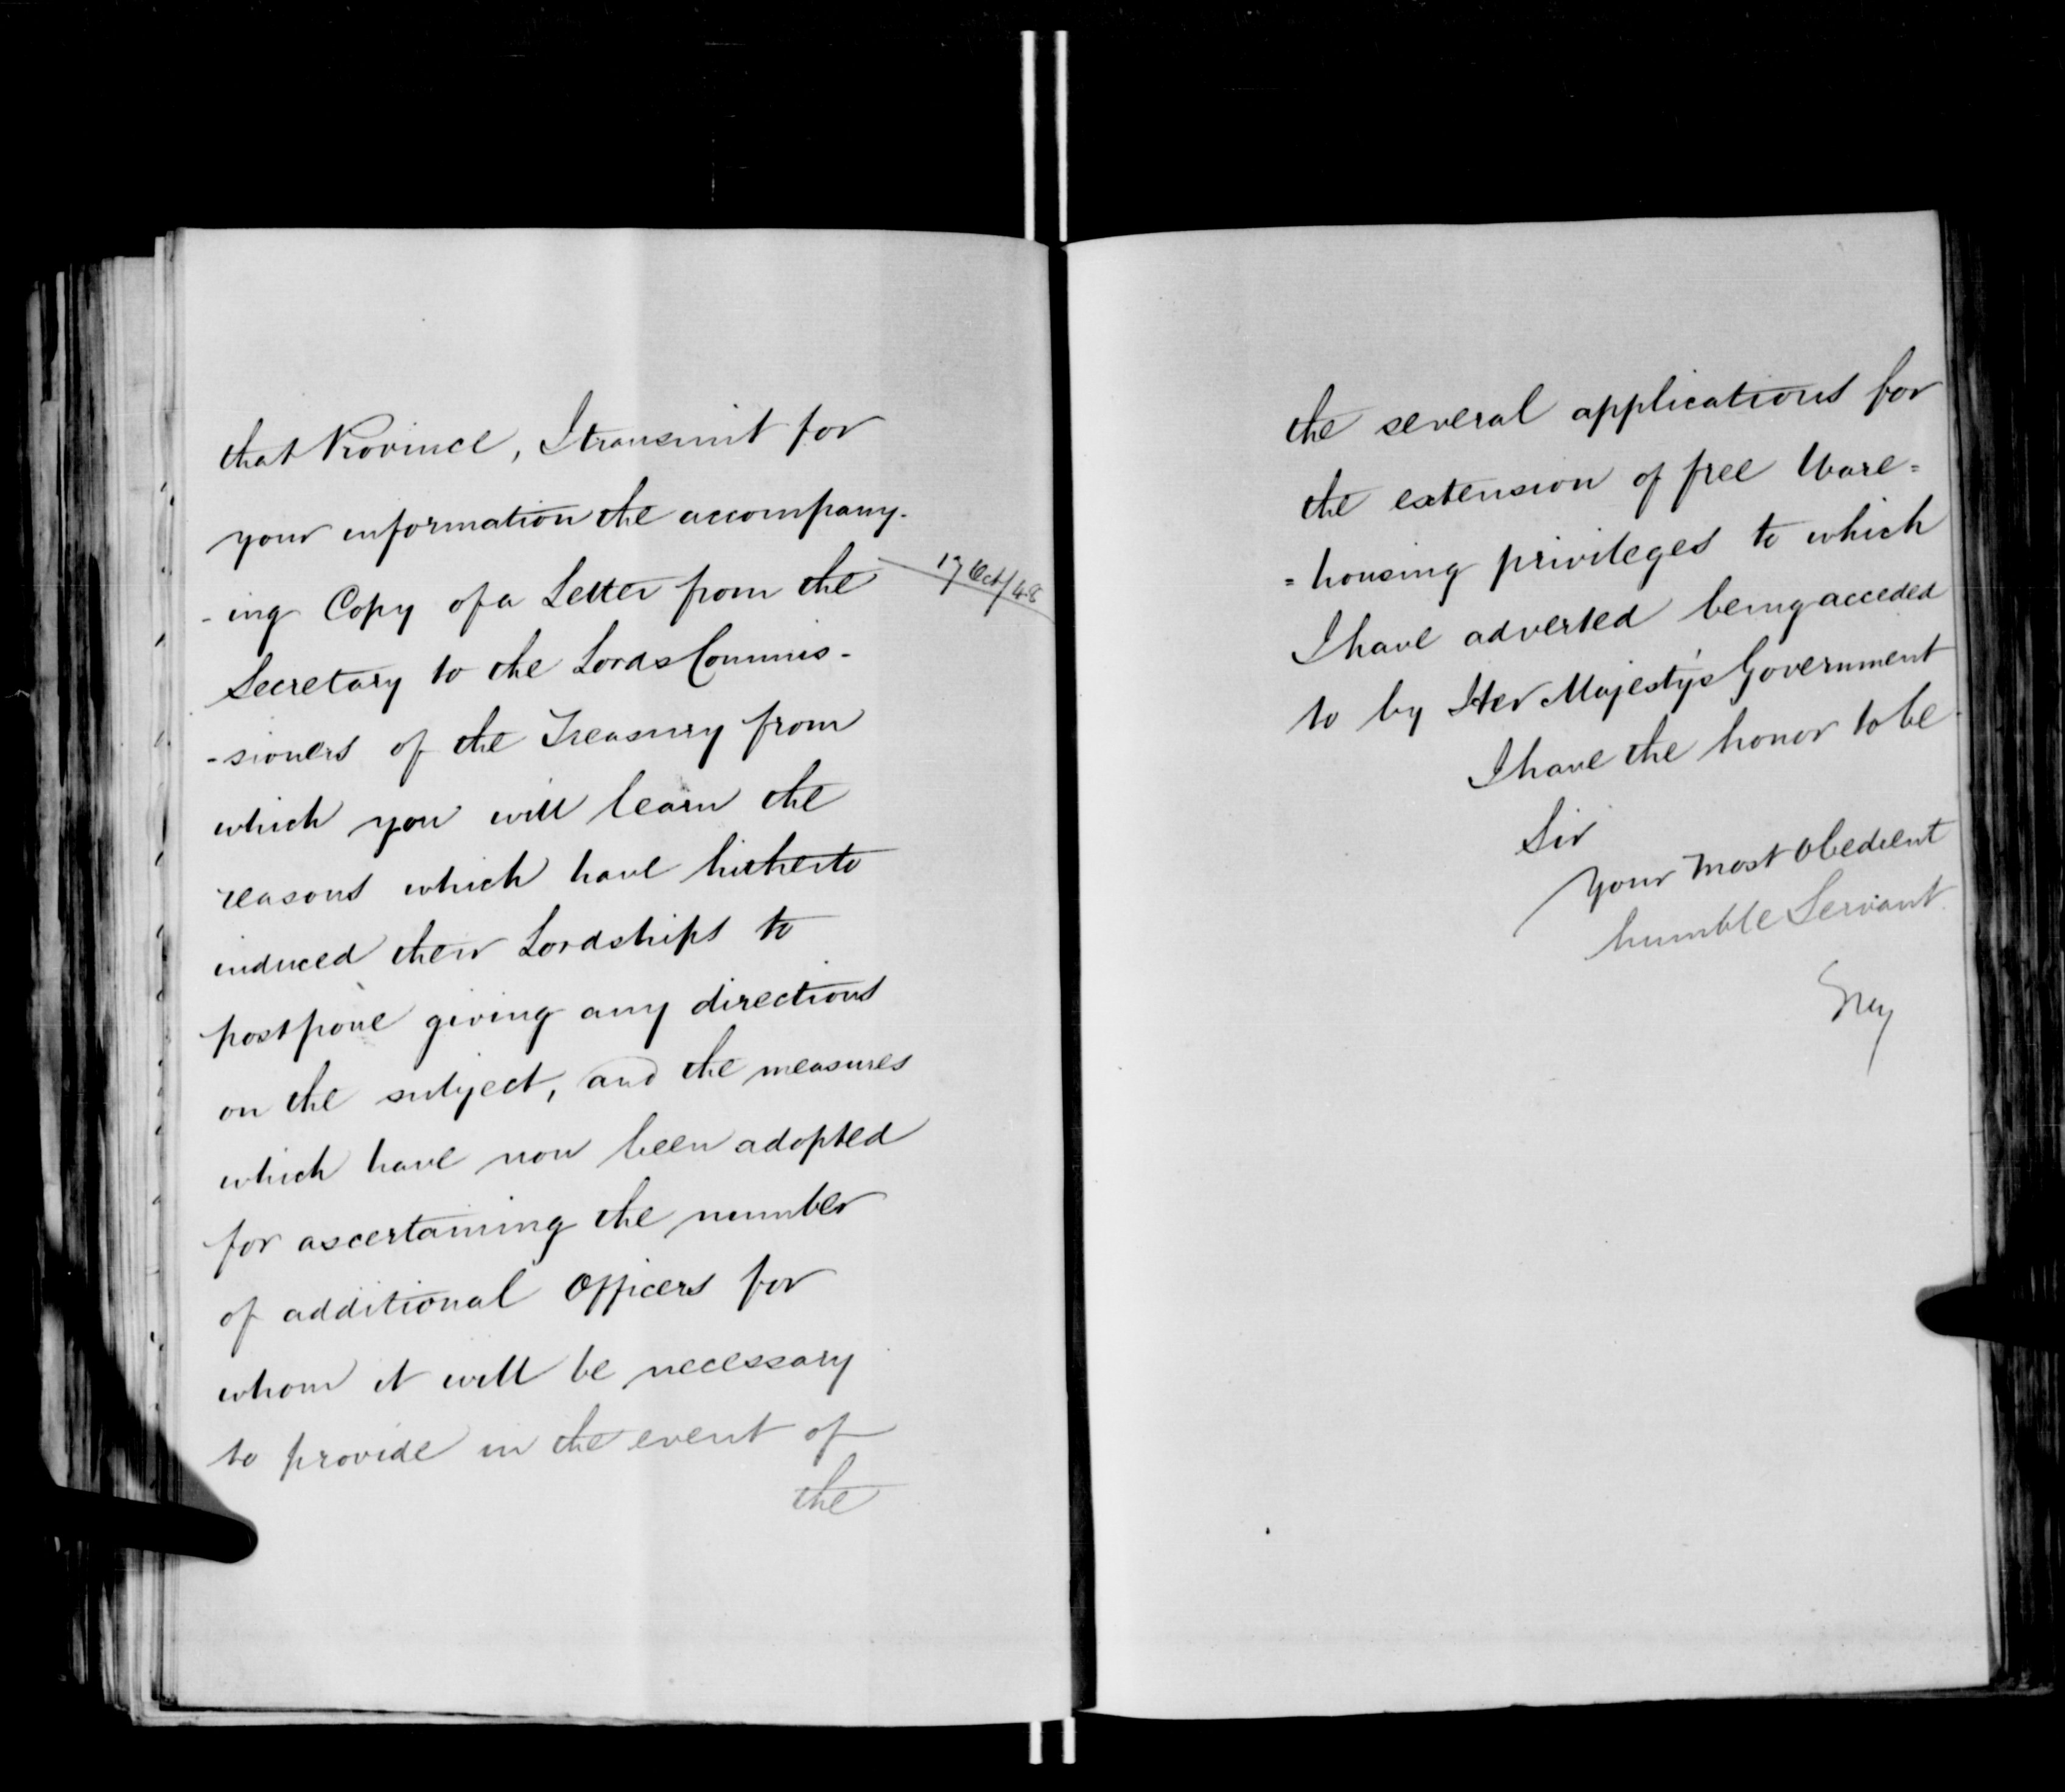 that Province, I transmit for
your information the accompany-
-ing Copy of a Letter from the
17 Oct/48
Secretary to the Lords Commis-
-sioners of the Treasury from
which you will learn the
reasons which have hitherto
induced their Lordships to
postpone giving any directions
on the subject, and the measures
which have now been adopted
for ascertaining the number
of additional Officers for
whom it will be necessary
to provide in the event of
the
the several applications for
the extension of free Ware=
=housing privileges to which
I have adverted being acceded
to by Her Majesty's Government
I have the honor to be
Sir
Your most obedient
humble Servant
Grey